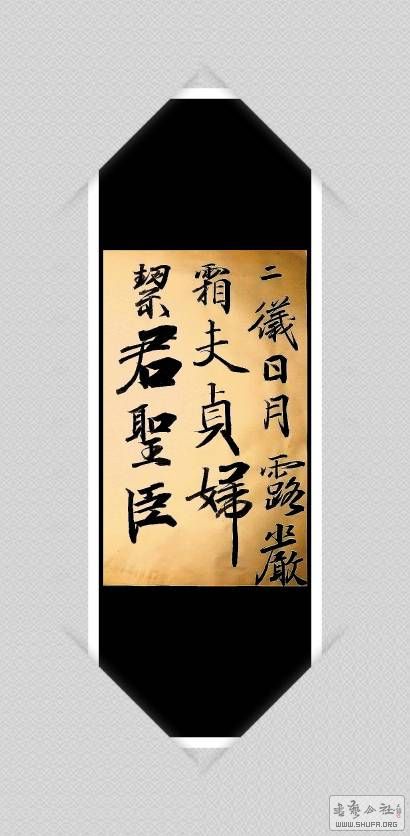 二儀日月露嚴
霜夫貞婦
絜君聖臣
書藝公社
WWW.SHUFA.ORG